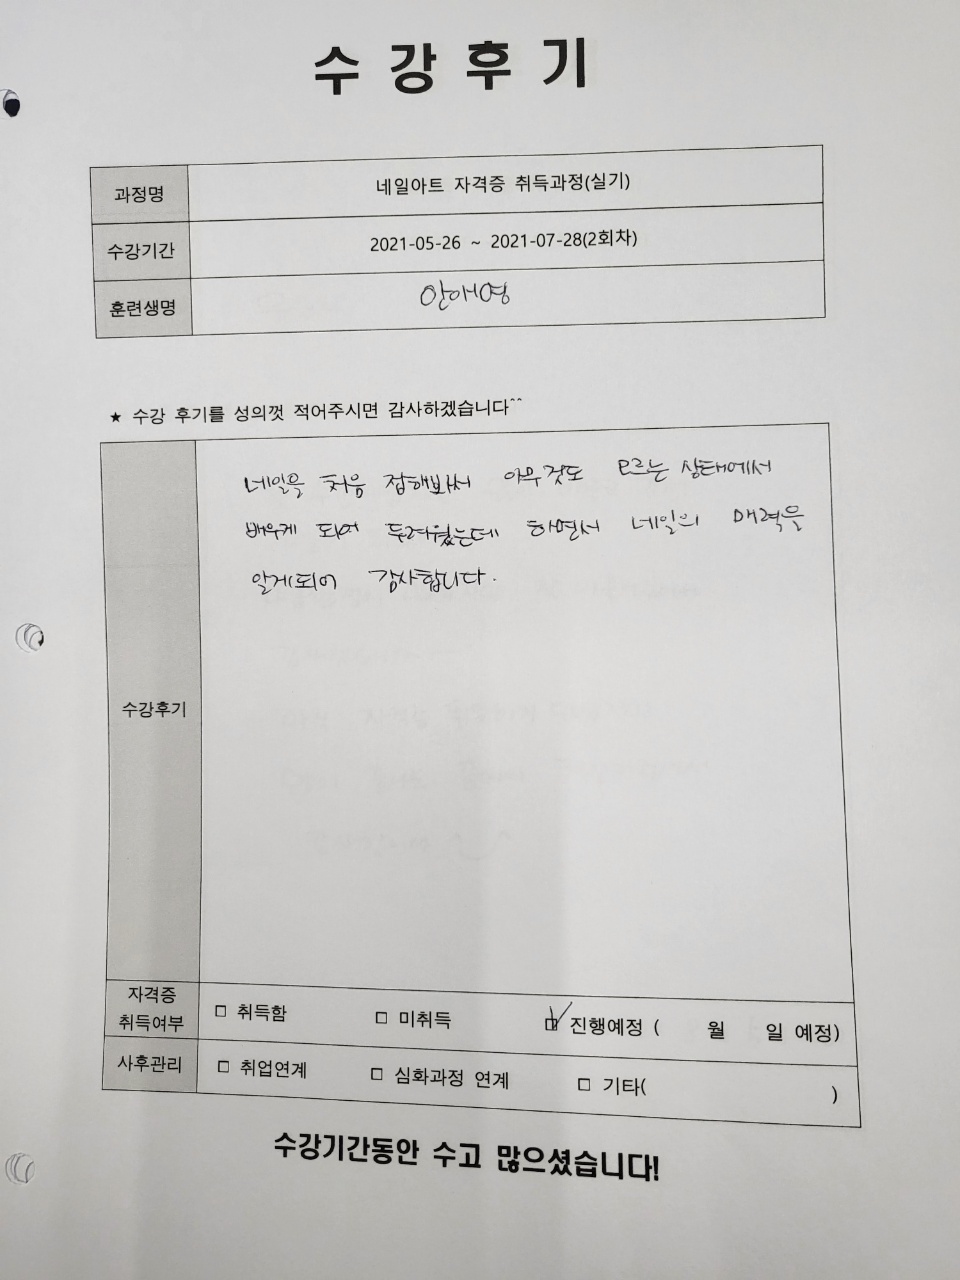 수 강 후 기
과정명 네일아트 자격증 취득과정(실기)
수강기간 2021-05-26 ~ 2021-07-28(2회차)
훈련생명 안애영
★ 수강 후기를 성의껏 적어주시면 감사하겠습니다^^
네일을 처음 접해봐서 아무것도 모르는 상태에서
배우게 되어 두려웠는데 하면서 네일의 매력을
알게되어 감사합니다.
수강후기
자격증
취득여부 □ 취득함 □ 미취득 ☑ 진행예정 ( 월 일 예정)
사후관리 □ 취업연계 □ 심화과정 연계 □ 기타( )
수강기간동안 수고 많으셨습니다!